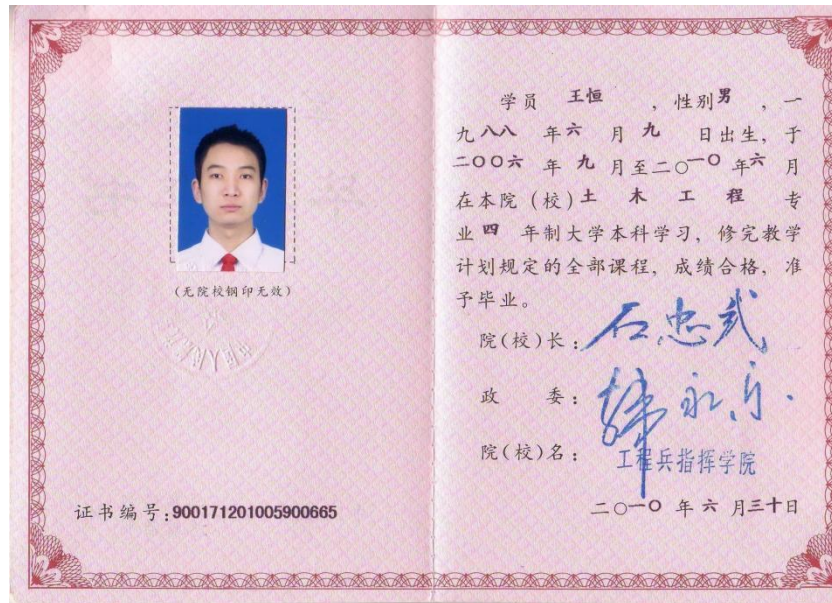 (无院校钢印无效)
证书编号:900171201005900665
学员 王恒 ,性别男,一
九八八 年六 月 九 日出生,于
二〇〇六 年 九 月至二〇一〇 年六 月
在本院(校)土 木 工 程 专
业 四 年制大学本科学习,修完教学
计划规定的全部课程,成绩合格,准
予毕业。
院(校)长:石忠武
政 委:
院(校)名:工程兵指挥学院
二〇一〇 年 六 月三十日